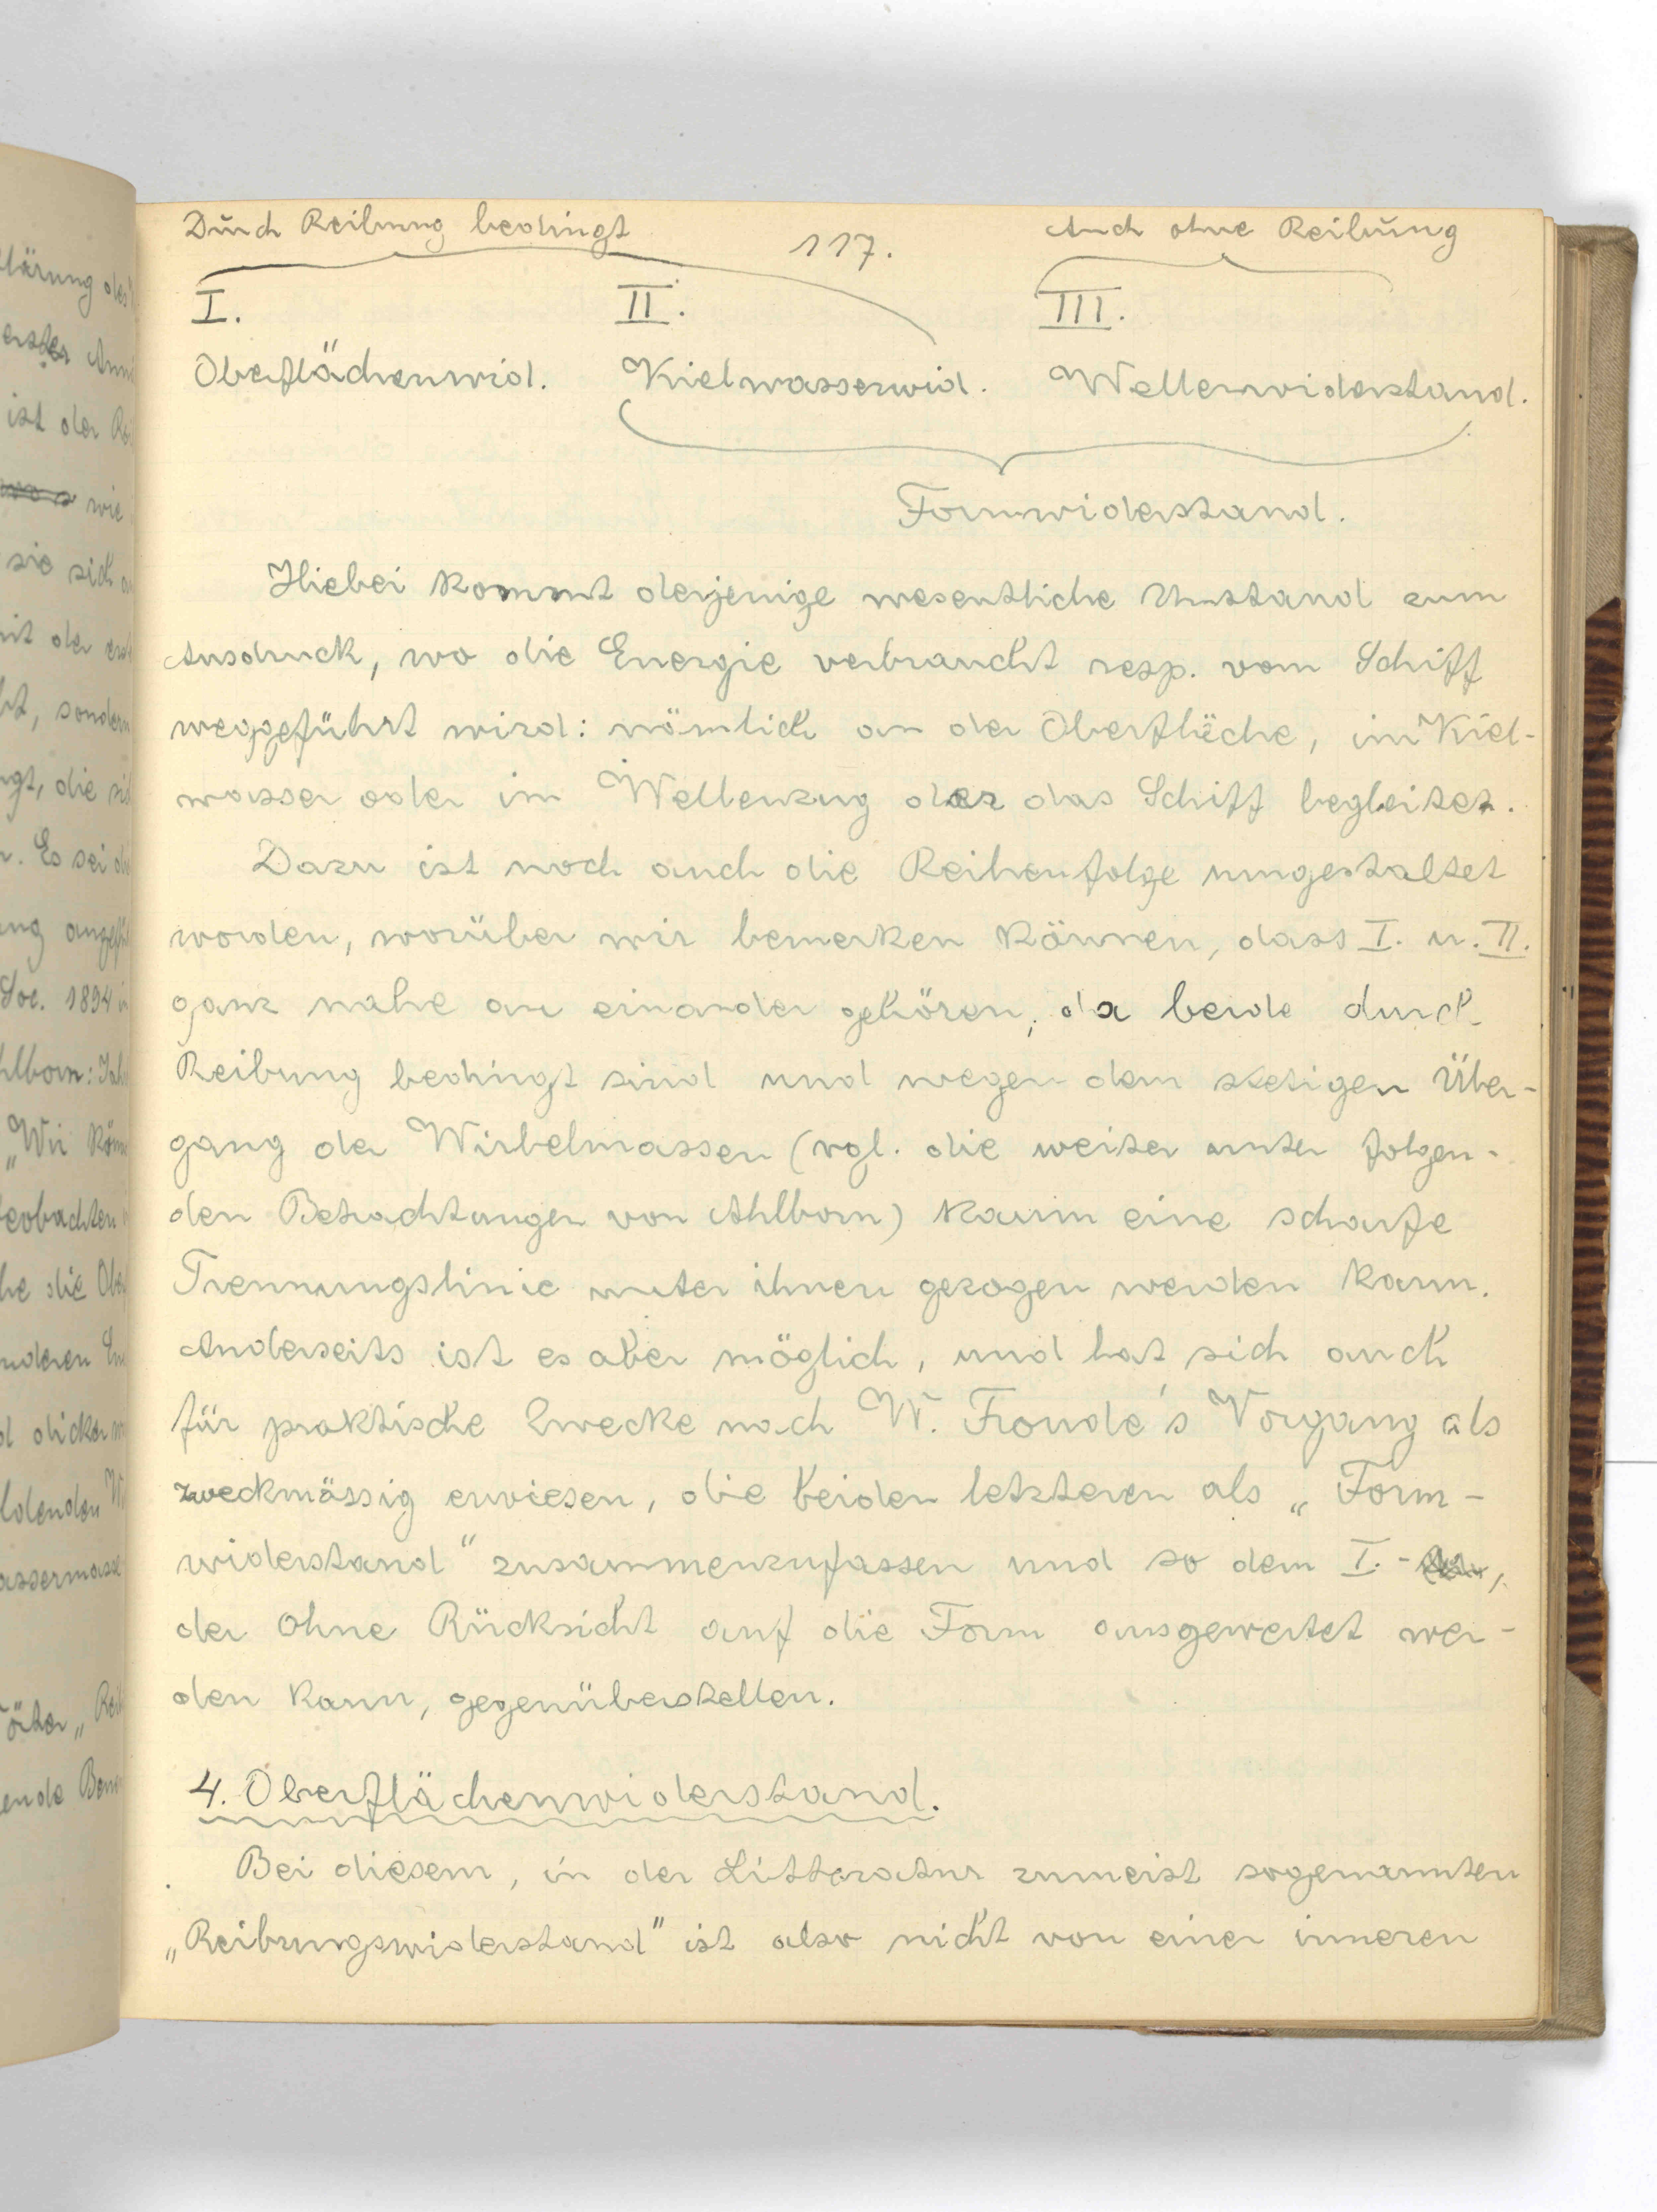 Durch Reibung bedingt
117.
Auch ohne Reibung
I.
II.
III.
Oberflächenwid.
Kielwasserwid.
Wellenwiderstand.
Formwiderstand.
Hiebei kommt derjenige wesentliche Umstand zum
Ausdruck, wo die Energie verbraucht resp. vom Schiff
weggeführt wird: nämlich an der Oberfläche, im Kiel-
wasser oder im Wellenzug der das Schiff begleitet.
Dazu ist noch auch die Reihenfolge umgestaltet
worden, worüber wir bemerken können, dass I. u. II.
ganz nahe an einander gehören, da beide durch
Reibung bedingt sind und wegen dem stetigen Über-
gang der Wirbelmassen (vgl. die weiter unten folgen-
den Betrachtungen von Ahlborn) kaum eine scharfe
Trennungslinie unter ihnen gezogen werden kann.
Anderseits ist es aber möglich, und hat sich auch
für praktische Zwecke nach W. Froude's Vorgang als
zweckmässig erwiesen, die beiden letzteren als „Form-
widerstand" zusammenzufassen und so dem I. -
der ohne Rücksicht auf die Form ausgewertet wer-
den kann, gegenüberstellen.
4. Oberflächenwiderstand.
Bei diesem, in der Litteratur zumeist sogenannten
„Reibungswiderstand" ist also nicht von einer inneren
klärung des
erster
ist der
wie
sie sich
mit der
sondern
die
Es sei
Soc. 1894
Ahlborn:
„Wir
beobachten
die
anderen
dicker
„